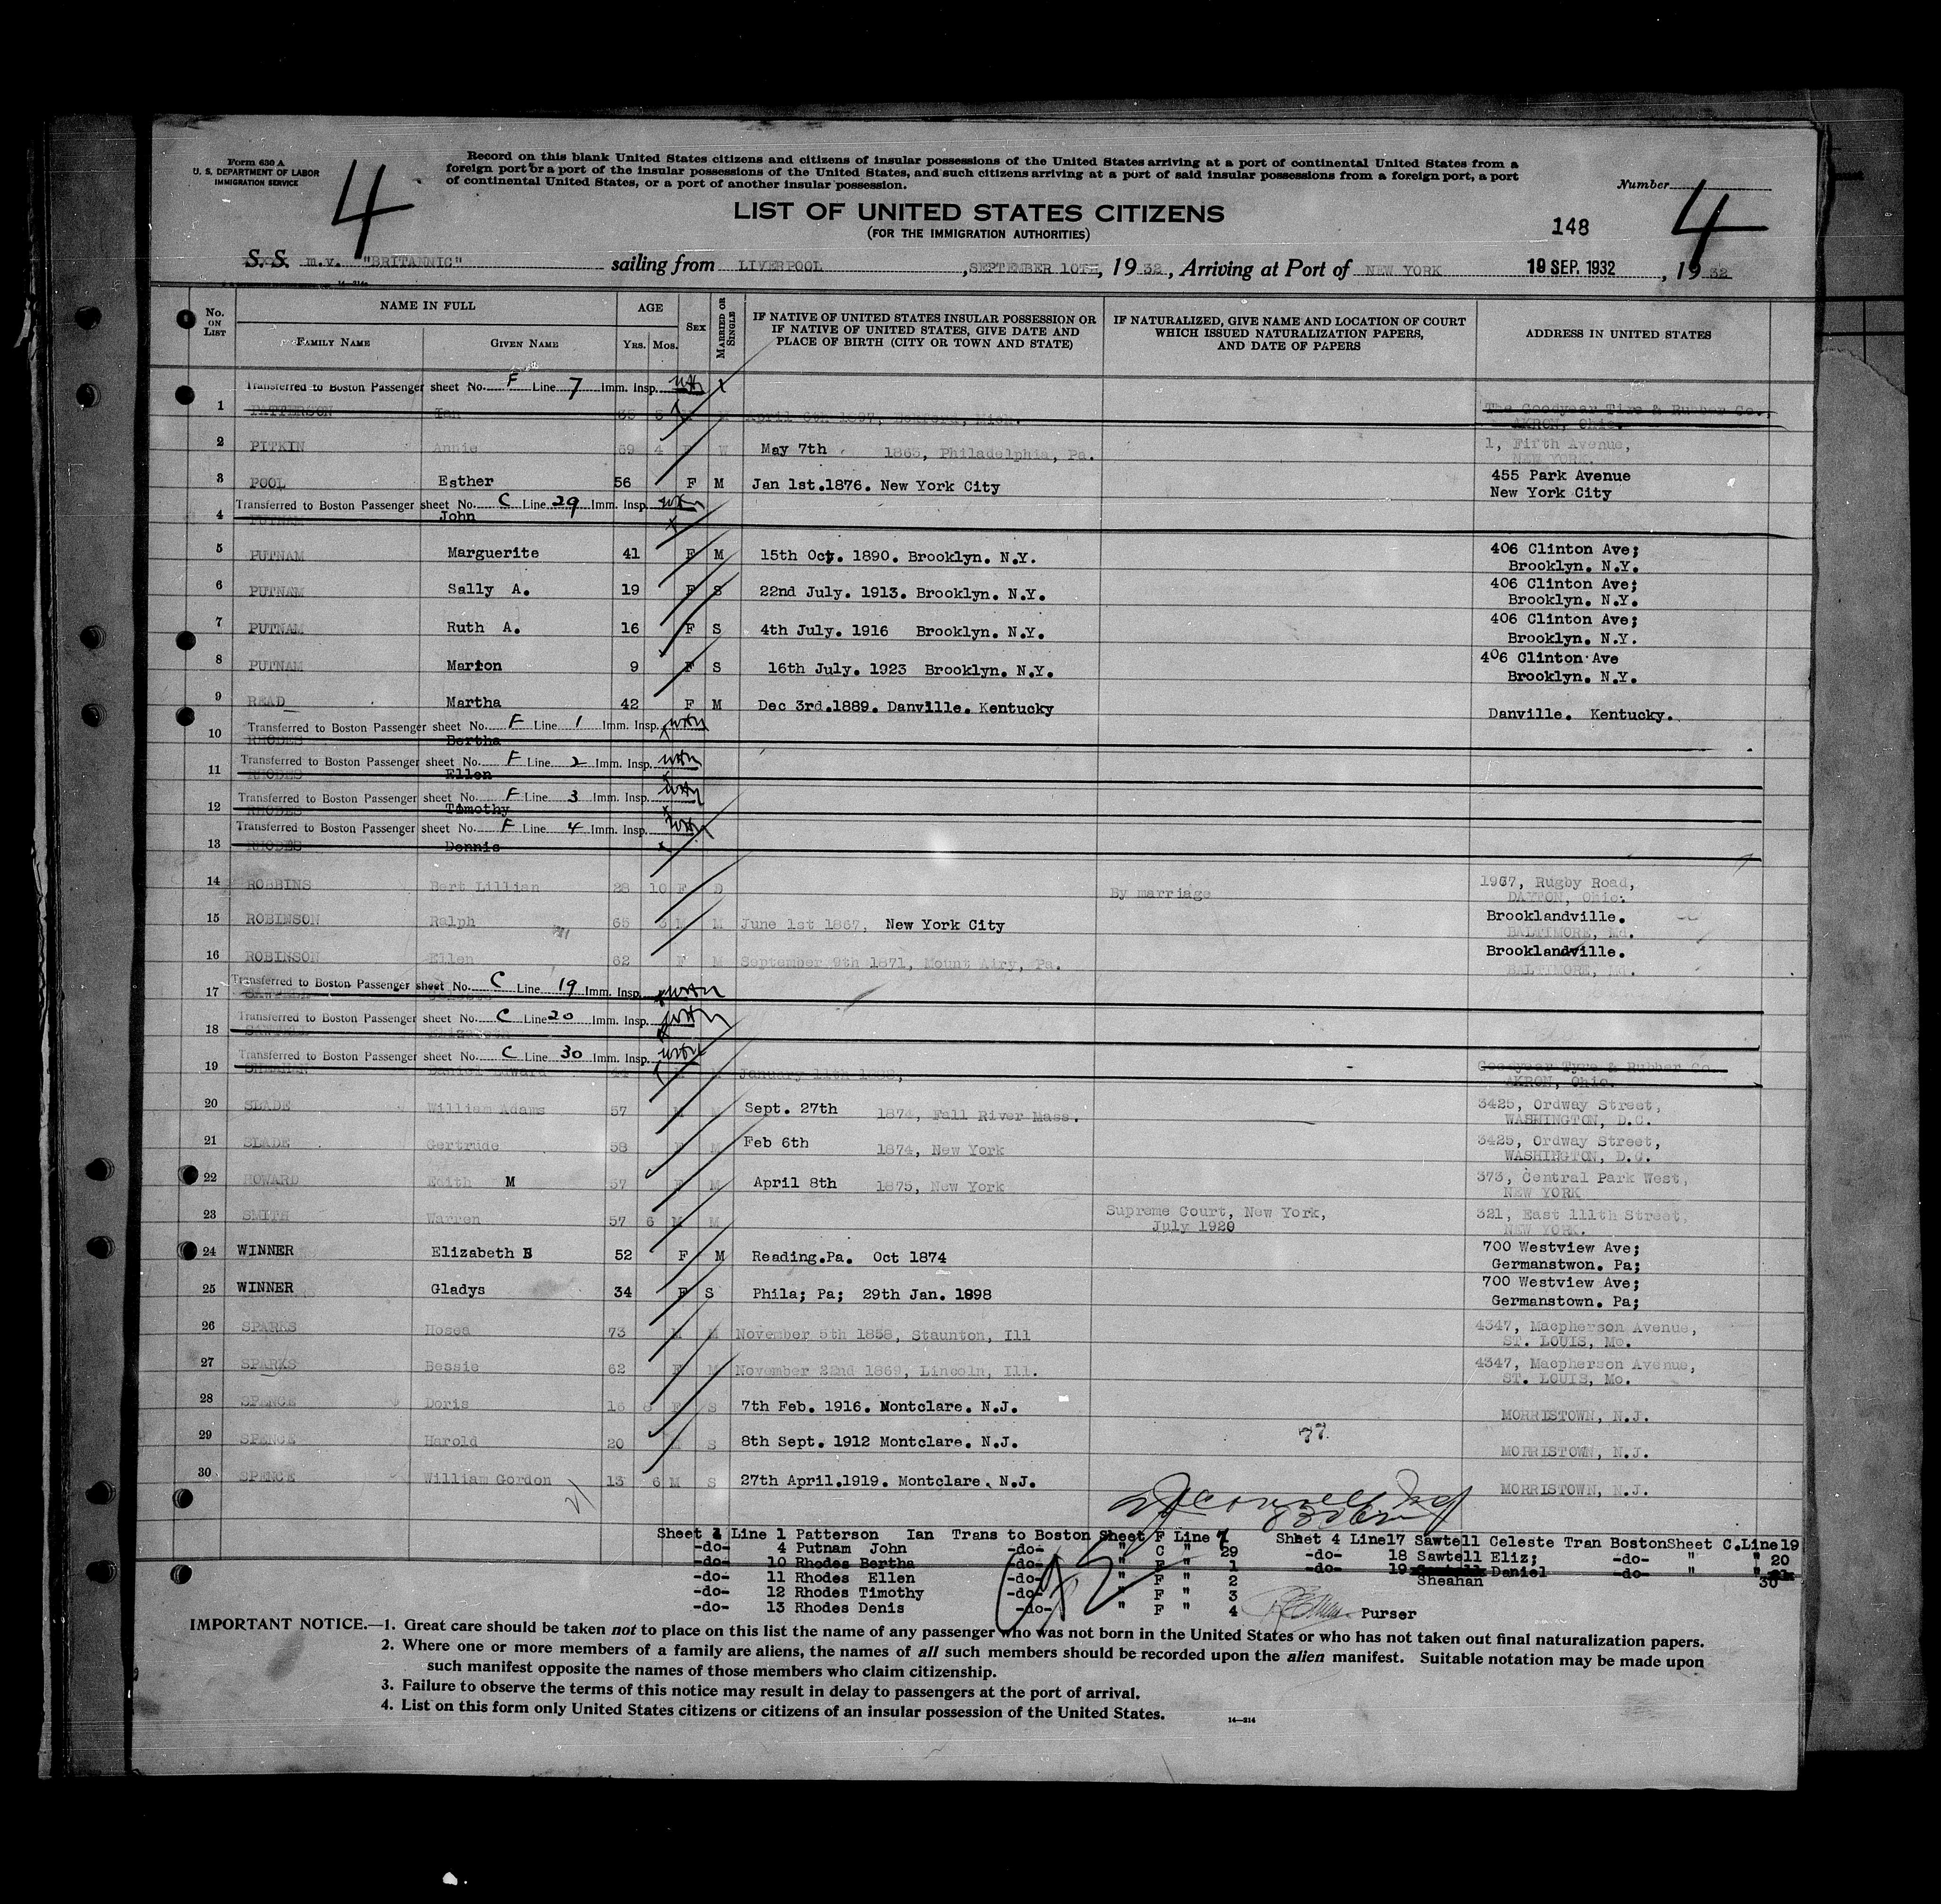 Form 630 A
U. S. DEPARTMENT OF LABOR
IMMIGRATION SERVICE
4
Record on this blank United States citizens and citizens of insular possessions of the United States arriving at a port of continental United States from a
foreign port or a port of the insular possessions of the United States, and such citizens arriving at a port of said insular possessions from a foreign port, a port
of continental United States, or a port of another insular possession.
Number 4
LIST OF UNITED STATES CITIZENS
(FOR THE IMMIGRATION AUTHORITIES)
148
S. S. m.v. "BRITANNIC" sailing from LIVERPOOL, SEPTEMBER 10TH, 1932, Arriving at Port of NEW YORK 19 SEP. 1932, 1932
No. ON LIST NAME IN FULL FAMILY NAME GIVEN NAME AGE YRS. MOS. SEX MARRIED OR SINGLE IF NATIVE OF UNITED STATES INSULAR POSSESSION OR IF NATIVE OF UNITED STATES, GIVE DATE AND PLACE OF BIRTH (CITY OR TOWN AND STATE) IF NATURALIZED, GIVE NAME AND LOCATION OF COURT WHICH ISSUED NATURALIZATION PAPERS, AND DATE OF PAPERS ADDRESS IN UNITED STATES
Transferred to Boston Passenger sheet No. F Line 7 Imm. Insp.
1 PATTERSON Ian The Goodyear Tire & Rubber Co.,
AKRON, Ohio.
2 PITKIN Annie 4 W May 7th 1865, Philadelphia, Pa. 1, Fifth Avenue,
NEW YORK.
3 POOL Esther 56 F M Jan 1st.1876. New York City 455 Park Avenue
New York City
Transferred to Boston Passenger sheet No. C Line 29 Imm. Insp.
4 PUTNAM John
5 PUTNAM Marguerite 41 F M 15th Oct. 1890. Brooklyn. N.Y. 406 Clinton Ave;
Brooklyn. N.Y.
6 PUTNAM Sally A. 19 F S 22nd July. 1913. Brooklyn. N.Y. 406 Clinton Ave;
Brooklyn. N.Y.
7 PUTNAM Ruth A. 16 F S 4th July. 1916 Brooklyn. N.Y. 406 Clinton Ave;
Brooklyn. N.Y.
8 PUTNAM Marion 9 F S 16th July. 1923 Brooklyn. N.Y. 406 Clinton Ave
Brooklyn. N.Y.
9 READ Martha 42 F M Dec 3rd.1889. Danville. Kentucky Danville. Kentucky.
Transferred to Boston Passenger sheet No. F Line 1 Imm. Insp.
10 RHODES Bertha
Transferred to Boston Passenger sheet No. F Line 2 Imm. Insp.
11 RHODES Ellen
Transferred to Boston Passenger sheet No. F Line 3 Imm. Insp.
12 RHODES Timothy
Transferred to Boston Passenger sheet No. F Line 4 Imm. Insp.
13 RHODES Dennis
14 ROBBINS Bert Lillian 28 10 F D By marriage 1967, Rugby Road,
DAYTON, Ohio.
15 ROBINSON Ralph 65 3 M M June 1st 1867, New York City Brooklandville.
BALTIMORE, Md.
16 ROBINSON Ellen 62 F M September 9th 1871, Mount Airy, Pa. Brooklandville.
BALTIMORE, Md.
Transferred to Boston Passenger sheet No. C Line 19 Imm. Insp.
17
Transferred to Boston Passenger sheet No. C Line 20 Imm. Insp.
18 Elizabeth
Transferred to Boston Passenger sheet No. C Line 30 Imm. Insp.
19 SHEEHAN Daniel Edward 44 M January 11th Goodyear Tyre & Rubber Co.
AKRON, Ohio.
20 SLADE William Adams 57 M M Sept. 27th 1874, Fall River Mass. 3425, Ordway Street,
WASHINGTON, D.C.
21 SLADE Gertrude 58 F M Feb 6th 1874, New York 3425, Ordway Street,
WASHINGTON, D.C.
22 HOWARD Edith M 57 F M April 8th 1875, New York 373, Central Park West,
NEW YORK
23 SMITH Warren 57 6 M M Supreme Court, New York,
July 1920 321, East 111th Street,
NEW YORK.
24 WINNER Elizabeth B 52 F M Reading.Pa. Oct 1874 700 Westview Ave;
Germanstwon. Pa;
25 WINNER Gladys 34 F S Phila; Pa; 29th Jan. 1898 700 Westview Ave;
Germanstown. Pa;
26 SPARKS Hosea 73 M M November 5th 1858, Staunton, Ill 4347, Macpherson Avenue,
ST. LOUIS, Mo.
27 SPARKS Bessie 62 F M November 22nd 1869, Lincoln, Ill. 4347, Macpherson Avenue,
ST. LOUIS, Mo.
28 SPENCE Doris 16 8 F S 7th Feb. 1916. Montclare. N.J. MORRISTOWN, N.J.
29 SPENCE Harold 20 M S 8th Sept. 1912 Montclare. N.J. MORRISTOWN, N.J.
30 SPENCE William Gordon 13 6 M S 27th April.1919. Montclare. N.J. MORRISTOWN, N.J.
Sheet 4 Line 1 Patterson Ian Trans to Boston Sheet F Line 7 Sheet 4 Line17 Sawtell Celeste Tran BostonSheet C.Line19
-do- 4 Putnam John -do- " C " 29 -do- 18 Sawtell Eliz; -do- " " 20
-do- 10 Rhodes Bertha -do- " F " 1 -do- 19 Sawtell Daniel -do- "
-do- 11 Rhodes Ellen -do- " F " 2 Sheahan 30
-do- 12 Rhodes Timothy -do- " F " 3
-do- 13 Rhodes Denis -do- " F " 4 Purser
IMPORTANT NOTICE.—1. Great care should be taken not to place on this list the name of any passenger who was not born in the United States or who has not taken out final naturalization papers.
2. Where one or more members of a family are aliens, the names of all such members should be recorded upon the alien manifest. Suitable notation may be made upon
such manifest opposite the names of those members who claim citizenship.
3. Failure to observe the terms of this notice may result in delay to passengers at the port of arrival.
4. List on this form only United States citizens or citizens of an insular possession of the United States.
14—214